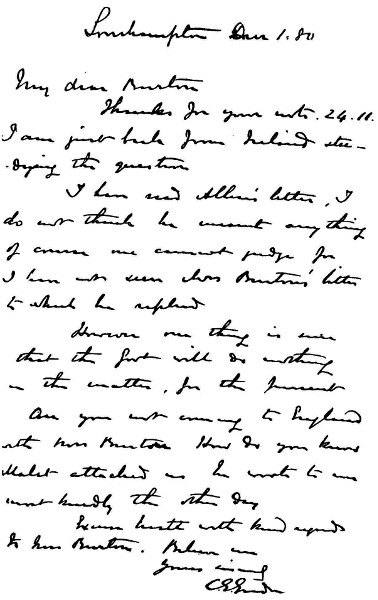 Southampton Dec 1. 80
My dear Burton
Thanks for your note. 24. 11.
I am just back from Ireland stu-
-dying the question
I have read Allen's letter, I
do not think he meant anything
of course one cannot judge for
I have not seen Mrs Burton's letter
to which he replied
However one thing is sure
that the Govt will do nothing
in the matter, for the present
Are you not coming to England
with Mrs Burton How do you know
Malet attached as he wrote to me
most kindly the other day
Excuse haste with kind regards
to Mrs Burton. Believe me
Yours sincerely
C. G. Gordon